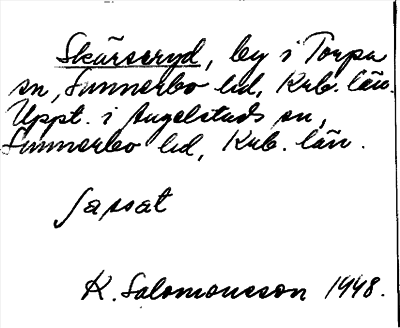 Skärseryd, by i Torpa
sn, Sunnerbo hd, Krb. län.
Uppt. i Angelstads sn,
Sunnerbo hd, Krb. län.
Jassat
K. Salomonsson 1948.